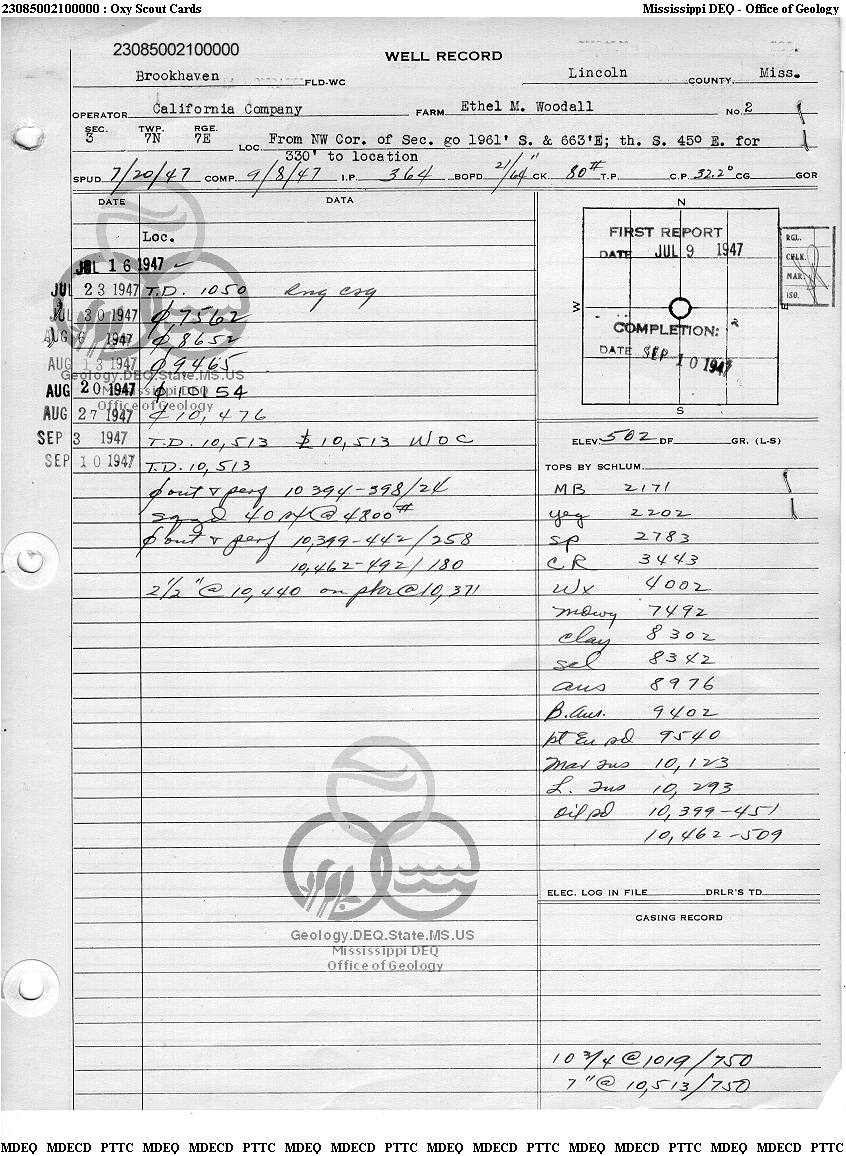 23085002100000 : Oxy Scout Cards Mississippi DEQ - Office of Geology
23085002100000
WELL RECORD
Brookhaven FLD-WC Lincoln COUNTY, Miss.
OPERATOR California Company FARM Ethel M. Woodall NO. 2
SEC. 3 TWP. 7N RGE. 7E LOC. From NW Cor. of Sec. go 1961' S. & 663'E; th. S. 45° E. for
330' to location
SPUD 7/20/47 COMP. 9/8/47 I.P. 364 BOPD 21/64" CK. 80# T.P. C.P. 32.2° CG GOR
DATE DATA
Loc.
JUL 16 1947
JUL 23 1947 T.D. 1050 Rng csg
JUL 30 1947 ₵ 7562
AUG 6 1947 ₵ 8652
AUG 13 1947 ₵ 9465
AUG 20 1947 ₵ 10154
AUG 27 1947 ₵ 10,476
SEP 3 1947 T.D. 10,513 10,513 WOC
SEP 10 1947 T.D. 10,513
out & perf 10 394-398/24
sqzd 40 @ 4800#
out & perf 10,399-442/258
10,462-492/180
2 1/2" @ 10,440 on pkr @ 10,371
N
FIRST REPORT
DATE JUL 9 1947
W
E
COMPLETION:
DATE SEP 10 1947
S
RGL.
CHK.
MAR.
ISO.
ELEV. 502 DF GR. (L-S)
TOPS BY SCHLUM.
MB 2171
yeg 2202
sp 2783
CR 3443
Wx 4002
mdwy 7492
clay 8302
sel 8342
aus 8976
B. Aus. 9402
pt Eu sd 9540
Mar Tus 10,123
L. Tus 10,293
oil sd 10,399-451
10,462-509
ELEC. LOG IN FILE DRLR'S TD
CASING RECORD
10 3/4 @ 1019/750
7" @ 10,513/750
Geology.DEQ.State.MS.US
Mississippi DEQ
Office of Geology
Geology.DEQ.State.MS.US
Mississippi DEQ
Office of Geology
MDEQ MDECD PTTC MDEQ MDECD PTTC MDEQ MDECD PTTC MDEQ MDECD PTTC MDEQ MDECD PTTC MDEQ MDECD PTTC